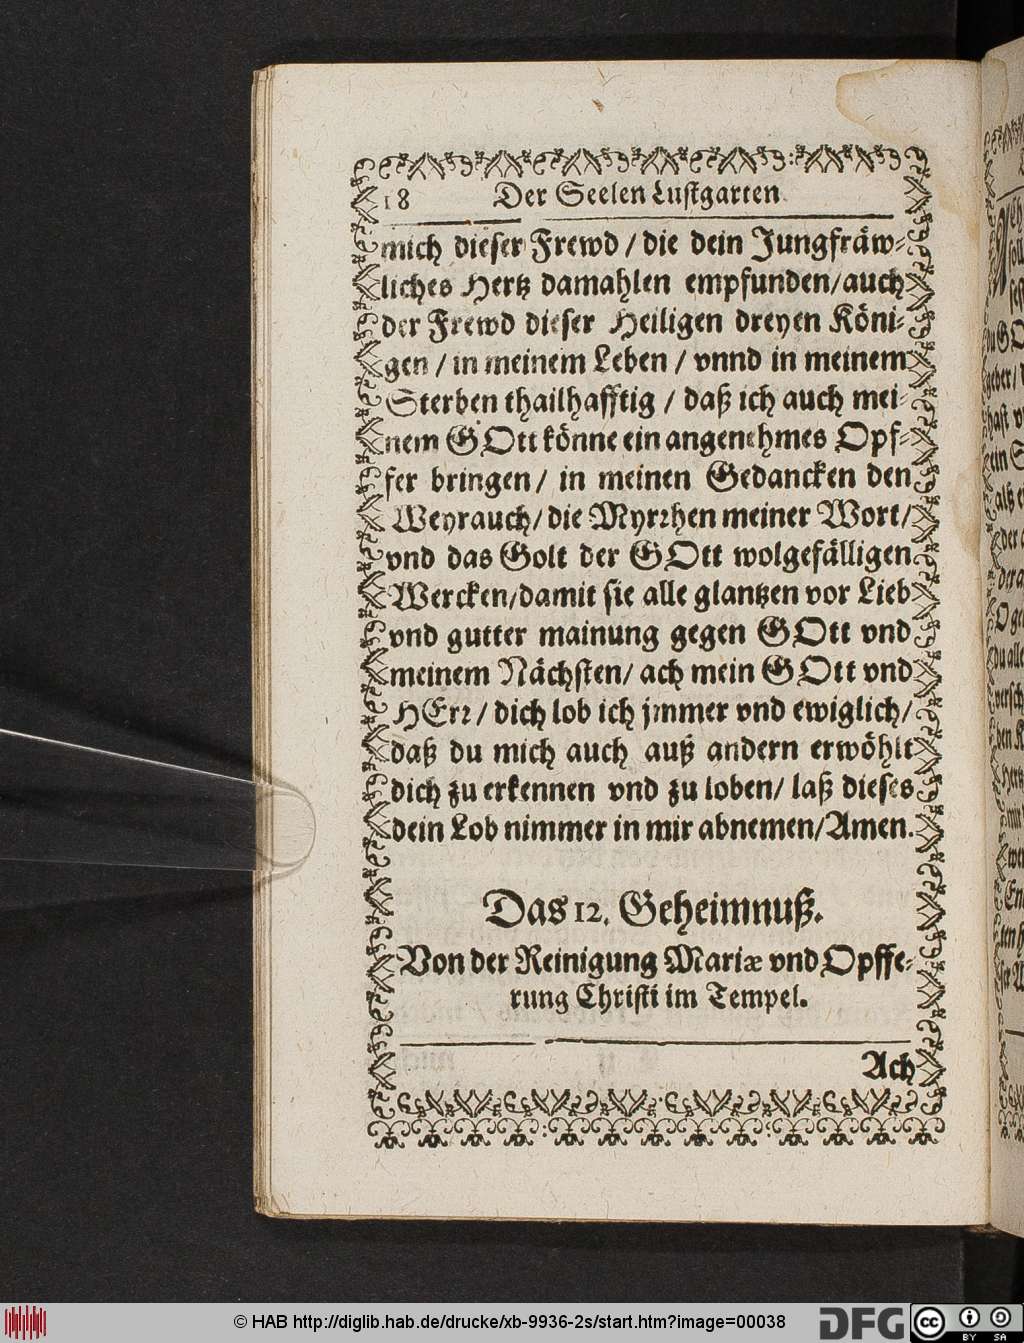 18 Der Seelen Lustgarten
mich dieser Frewd / die dein Jungfräw⸗
liches Hertz damahlen empfunden/auch
der Frewd dieser Heiligen dreyen Köni⸗
gen / in meinem Leben / vnnd in meinem
Sterben thailhafftig / daß ich auch mei⸗
nem GOtt könne ein angenehmes Opf⸗
fer bringen / in meinen Gedancken den
Weyrauch/ die Myrꝛhen meiner Wort/
vnd das Golt der GOtt wolgefälligen
Wercken/damit sie alle glantzen vor Lieb
vnd gutter mainung gegen GOtt vnd
meinem Nächsten/ ach mein GOtt vnd
HErꝛ / dich lob ich jmmer vnd ewiglich/
daß du mich auch auß andern erwöhlt
dich zu erkennen vnd zu loben/ laß dieses
dein Lob nimmer in mir abnemen/Amen.
Das 12. Geheimnuß.
Von der Reinigung Mariæ vnd Opffe⸗
rung Christi im Tempel.
Ach
© HAB http://diglib.hab.de/drucke/xb-9936-2s/start.htm?image=00038
DFG
cc
BY SA